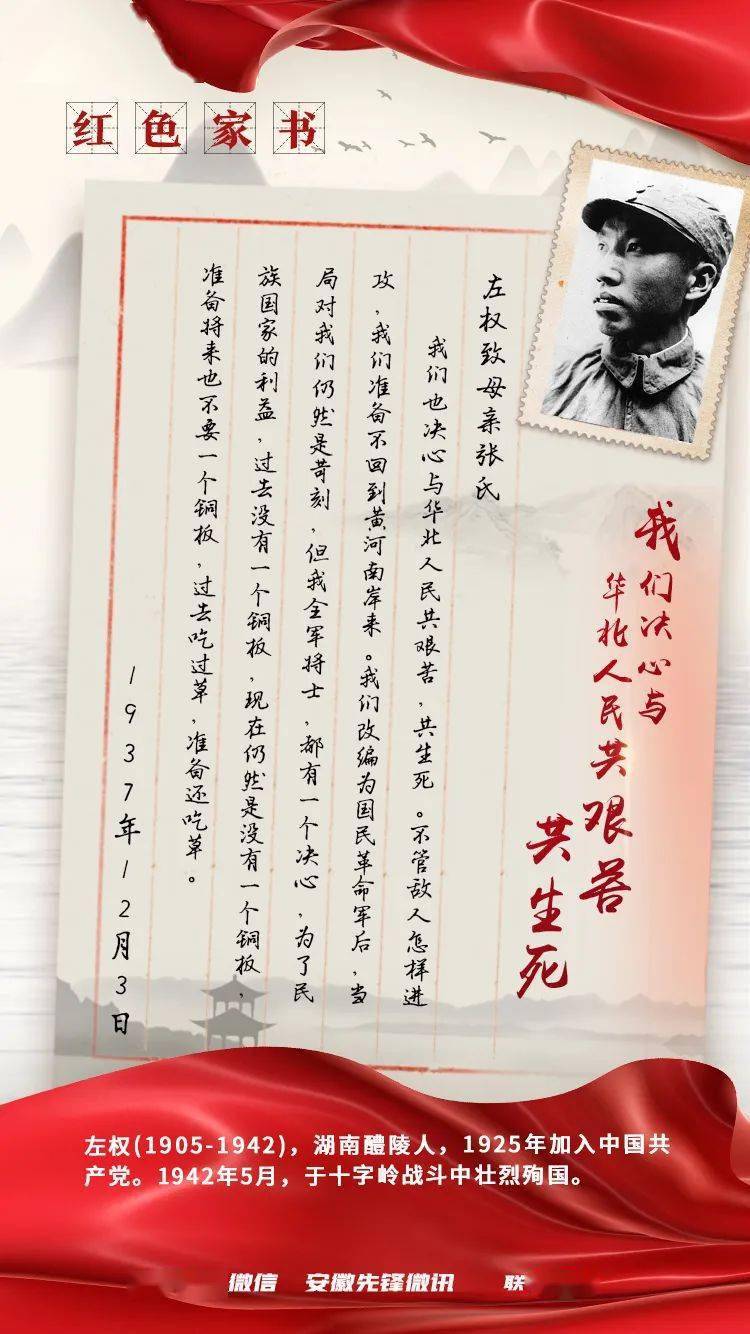 红色家书
我们决心与
华北人民共艰苦
共生死
左权致母亲张氏
我们也决心与华北人民共艰苦，共生死。不管敌人怎样进
攻，我们准备不回到黄河南岸来。我们改编为国民革命军后，当
局对我们仍然是苛刻，但我全军将士，都有一个决心，为了民
族国家的利益，过去没有一个铜板，现在仍然是没有一个铜板，
准备将来也不要一个铜板，过去吃过草，准备还吃草。
1937年12月3日
左权(1905-1942)，湖南醴陵人，1925年加入中国共
产党。1942年5月，于十字岭战斗中壮烈殉国。
微信 安徽先锋微讯 联